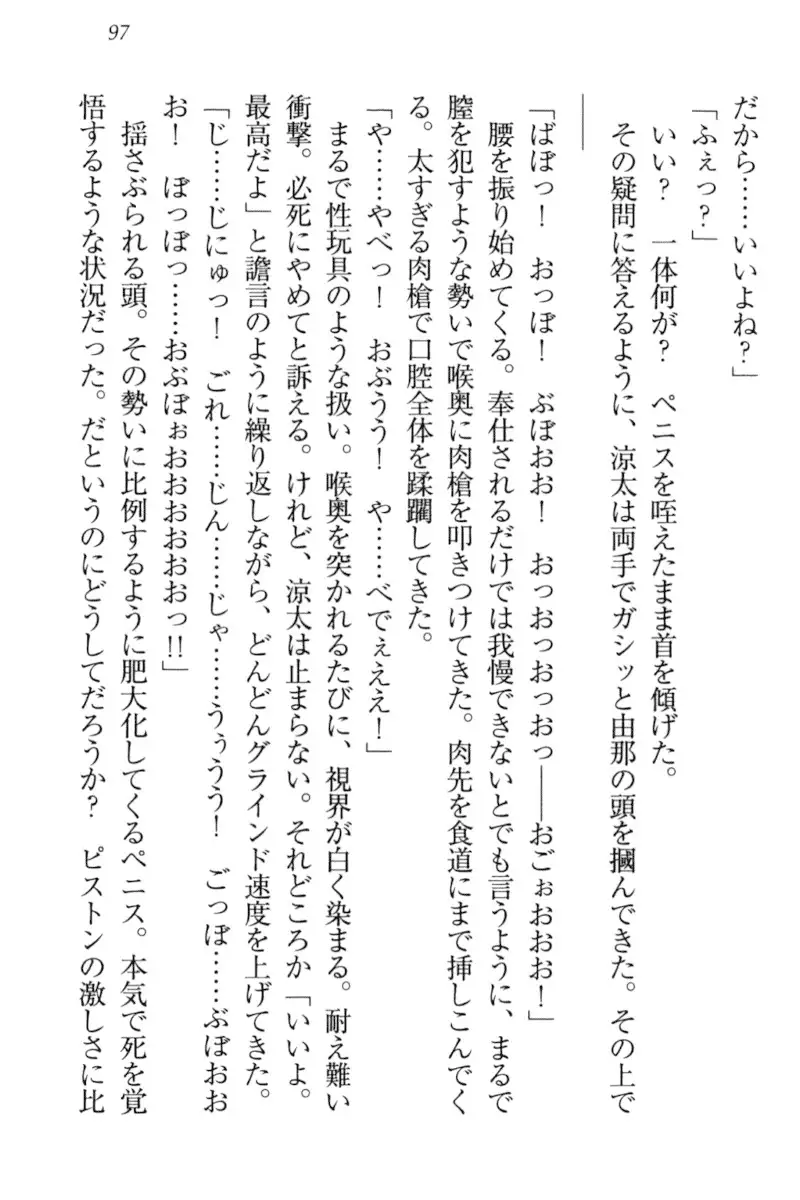 97
だから……いいよね？」
「ふぇっ？」
いい？　一体何が？　ペニスを咥えたまま首を傾げた。
その疑問に答えるように、涼太は両手でガシッと由那の頭を摑んできた。その上で
――
「ばぼっ！　おっぽ！　ぶぼおお！　おっおっおっおっ――おごぉおおお！」
腰を振り始めてくる。奉仕されるだけでは我慢できないとでも言うように、まるで
膣を犯すような勢いで喉奥に肉槍を叩きつけてきた。肉先を食道にまで挿しこんでく
る。太すぎる肉槍で口腔全体を蹂躙してきた。
「や……やべっ！　おぶうう！　や……べでぇええ！」
まるで性玩具のような扱い。喉奥を突かれるたびに、視界が白く染まる。耐え難い
衝撃。必死にやめてと訴える。けれど、涼太は止まらない。それどころか「いいよ。
最高だよ」と譫言のように繰り返しながら、どんどんグラインド速度を上げてきた。
「じ……じにゅっ！　ごれ……じん……じゃ……うぅうう！　ごっぼ……ぶぼおお
お！　ぼっぼっ……おぶぼぉおおおおおおっ!!」
揺さぶられる頭。その勢いに比例するように肥大化してくるペニス。本気で死を覚
悟するような状況だった。だというのにどうしてだろうか？　ピストンの激しさに比